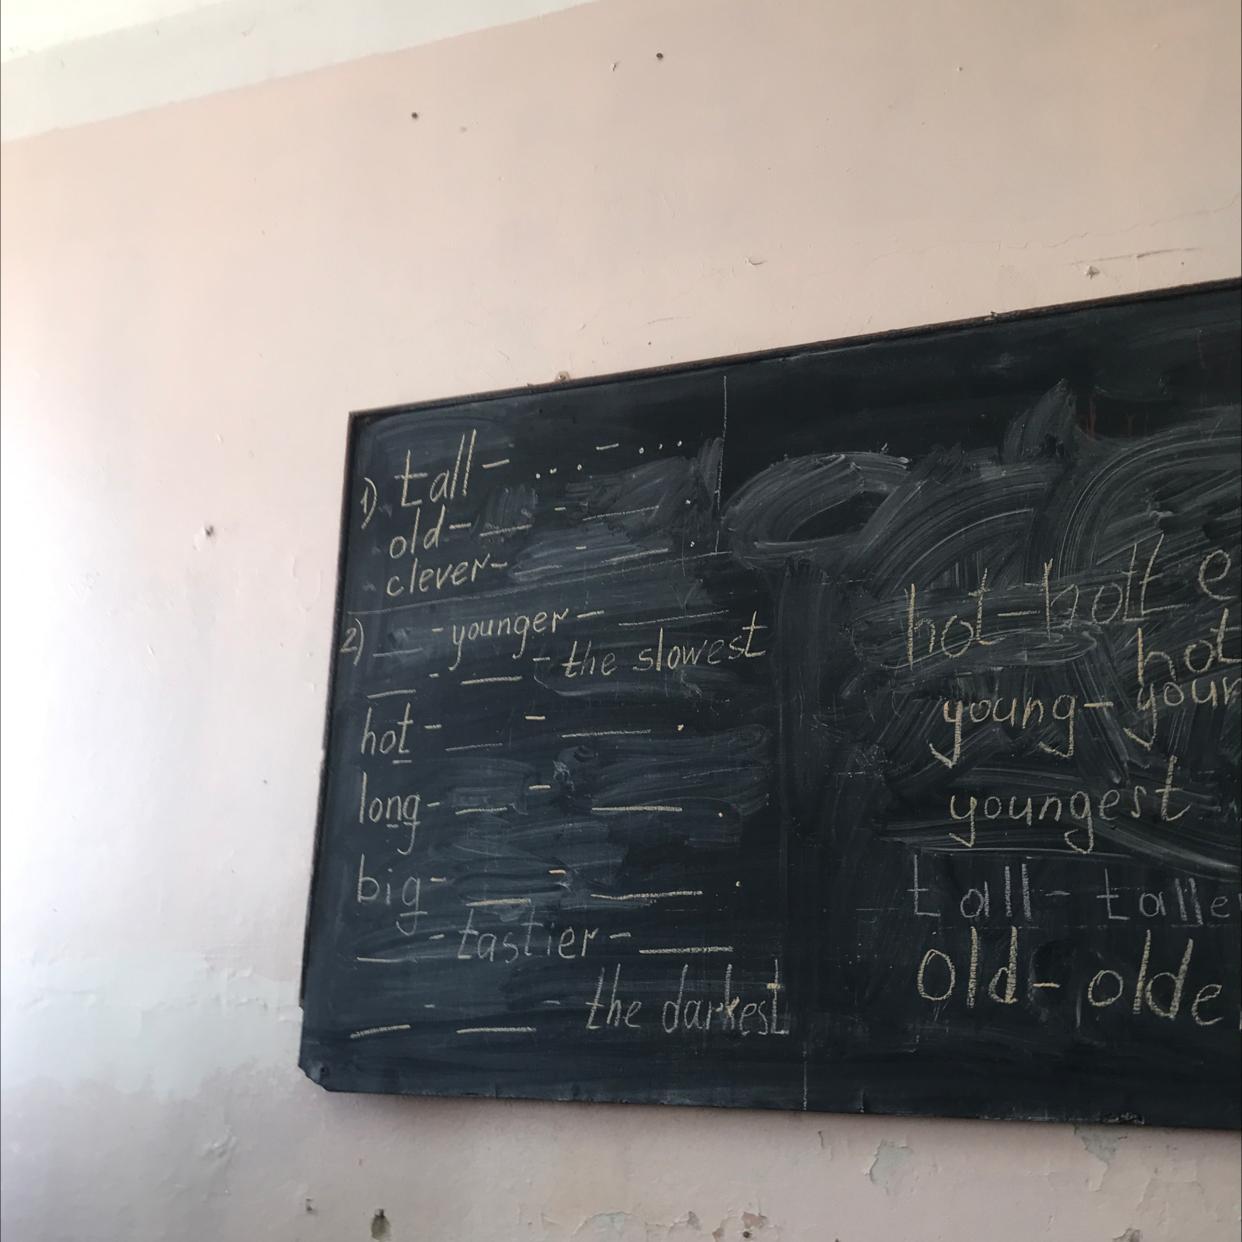 1) tall - ... - ....
old - __ - __.
clever - __ - __.
2) __ - younger - __
__ - __ - the slowest
hot - __ - __.
long - __ - __.
big - __ - __.
__ - tastier - __
__ - __ - the darkest
hot - hotte
hot
young - youn
youngest
tall - talle
old - olde